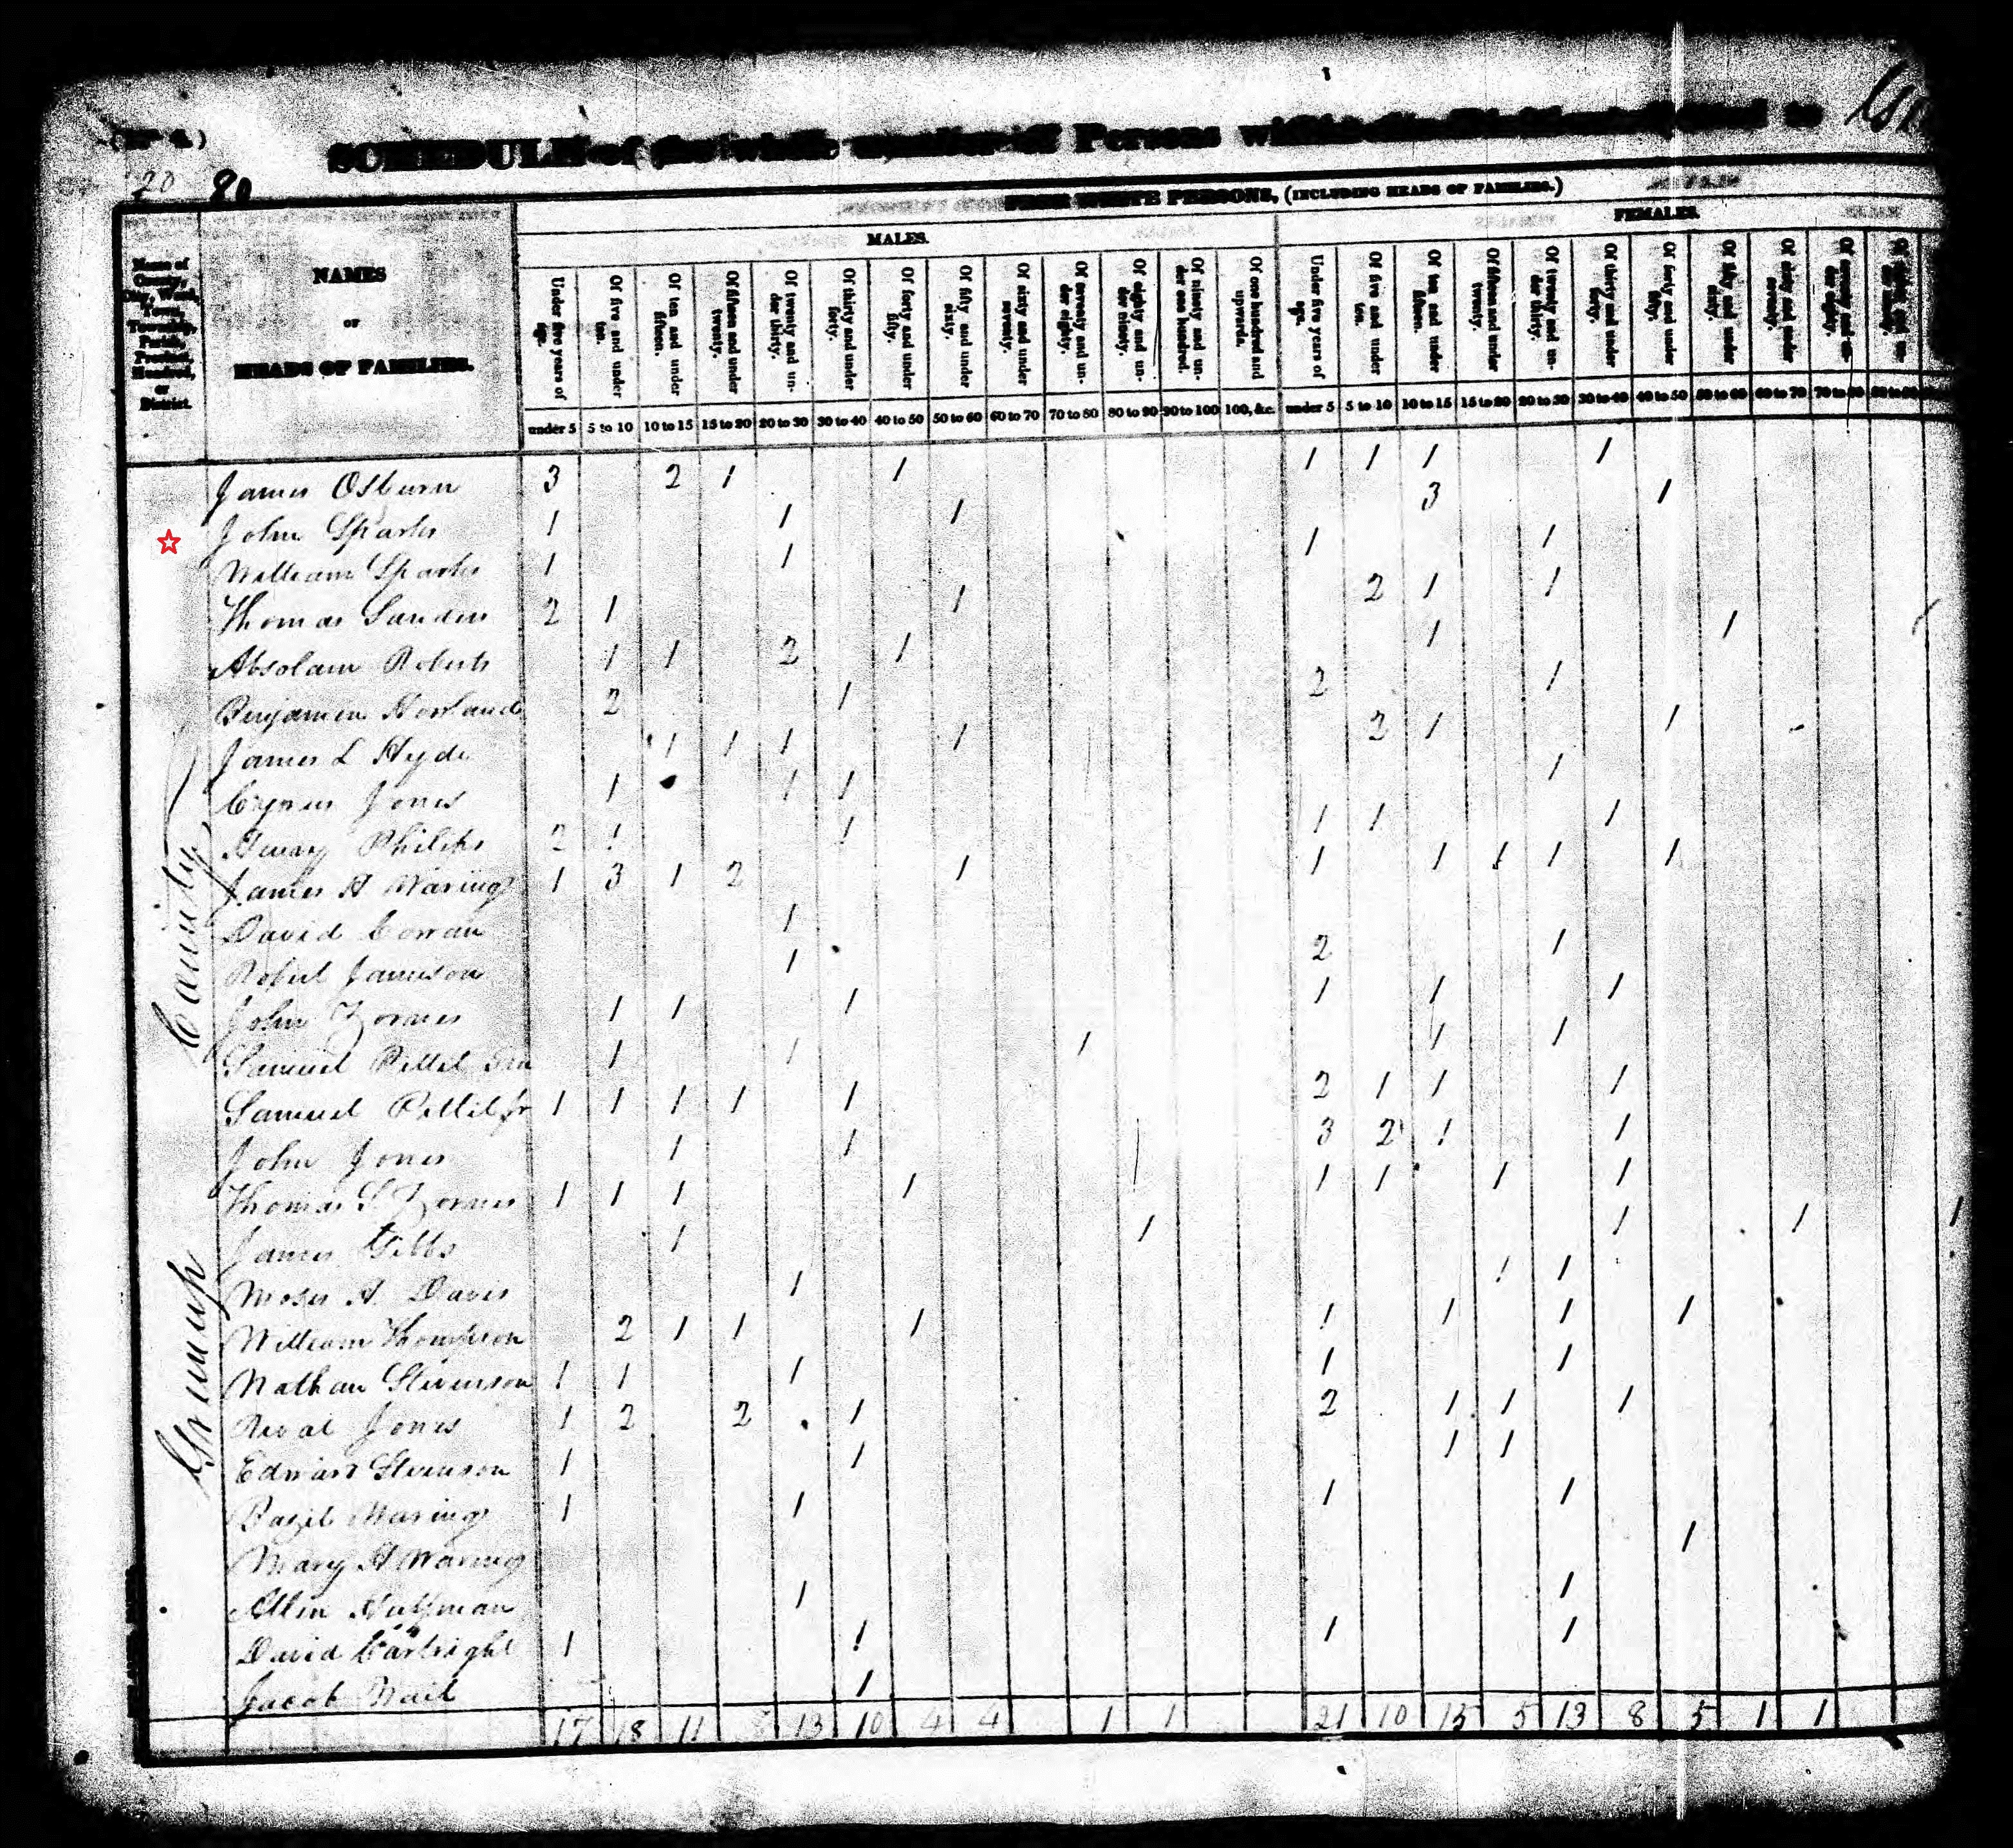 (No. 1.)
SCHEDULE of the whole number of Persons within the Division allotted to
20 20
FREE WHITE PERSONS, (INCLUDING HEADS OF FAMILIES.)
MALES.
FEMALES.
Name of County, City, Ward, Town, Township, Parish, Precinct, Hundred, or District.
NAMES
OR
HEADS OF FAMILIES.
Under five years of age.
Of five and under ten.
Of ten and under fifteen.
Of fifteen and under twenty.
Of twenty and under thirty.
Of thirty and under forty.
Of forty and under fifty.
Of fifty and under sixty.
Of sixty and under seventy.
Of seventy and under eighty.
Of eighty and under ninety.
Of ninety and under one hundred.
Of one hundred and upwards.
Under five years of age.
Of five and under ten.
Of ten and under fifteen.
Of fifteen and under twenty.
Of twenty and under thirty.
Of thirty and under forty.
Of forty and under fifty.
Of fifty and under sixty.
Of sixty and under seventy.
Of seventy and under eighty.
under 5 5 to 10 10 to 15 15 to 20 20 to 30 30 to 40 40 to 50 50 to 60 60 to 70 70 to 80 80 to 90 90 to 100 100, &c. under 5 5 to 10 10 to 15 15 to 20 20 to 30 30 to 40 40 to 50 50 to 60 60 to 70 70 to 80
Greenup County
James Osburn 3 2 1 1 1 1 1 1
John Sparks 1 1 1 3 1
William Sparks 1 1 1 1
Thomas Sanders 2 1 1 2 1 1
Absolam Roberts 1 1 2 1 1 1
Benjamin Howland 2 1 2 1
James L Hyde 1 1 1 1 2 1 1
Cyrus Jones 1 1 1 1
Henry Philips 2 1 1 1 1 1
James H Waring 1 3 1 2 1 1 1 1 1 1
David Cowan 1
Robert Jameson 1 2 1
John Zornes 1 1 1 1 1 1
Samuel Pettit Sen 1 1 1 1 1
Samuel Pettit Jr 1 1 1 1 1 2 1 1 1
John Jones 1 1 3 2 1 1
Thomas S Zornes 1 1 1 1 1 1 1 1
James Gibbs 1 1 1 1 1
Moses A Davis 1 1 1
William Thompson 2 1 1 1 1 1 1 1
Nathan Stevenson 1 1 1 1 1
Jones 1 2 2 1 2 1 1 1
Edward Stevenson 1 1 1 1
Bazil Waring 1 1 1 1
Mary H Waring 1
Allen Huffman 1 1
David Cartright 1 1 1 1
Jacob Nail 1
17 18 11 8 13 10 4 4 1 1 21 10 15 5 13 8 5 1 1